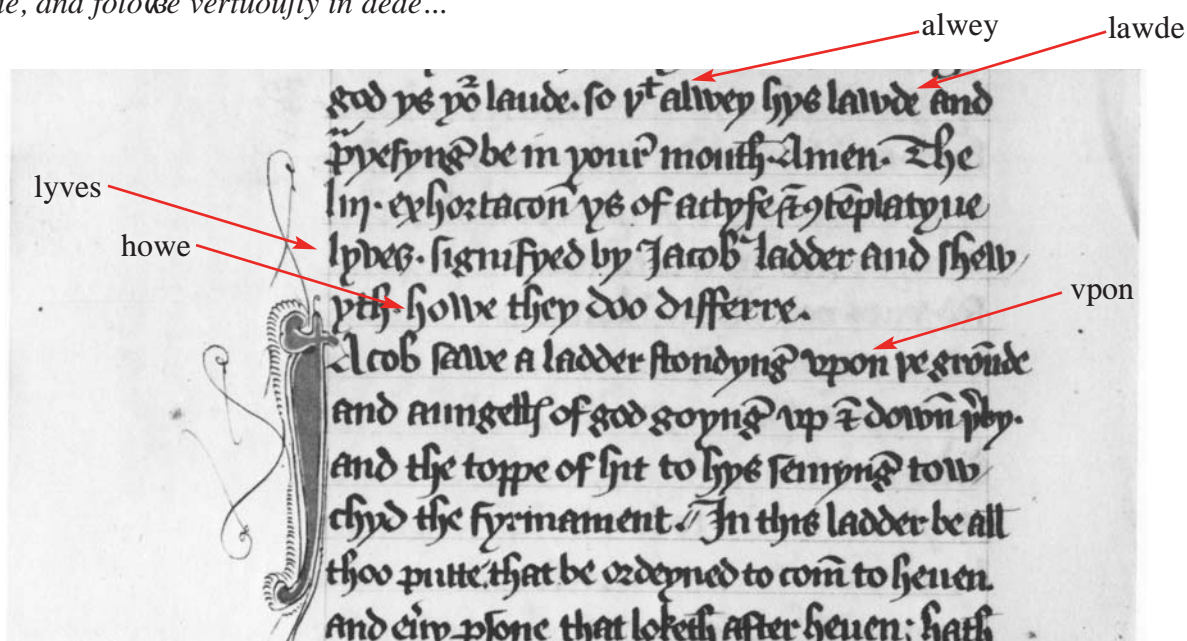 and folowe vertuously in dede...
alwey
lawde
god ys yoͬ laude. so yͭ alwey hys lawde and
pͣyesyng be in your mouth. Amen. The
iiij. exhortacon ys of actyfe & ꝯtēplatyue
lyves
lyves. signifyed by Jacob ladder and shew
howe
yth. howe they doo differre.
vpon
JAcob sawe a ladder stondyng vpon þe groūde
and aungellꝭ of god goyng vp & down þͬby.
and the toppe of hit to hys semyng tow
chyd the fyrmament. // In this ladder be all
thoo putte, that be ordeyned to com̄ to heuen.
and eu͛y ꝑsone that loketh after heuen; hath